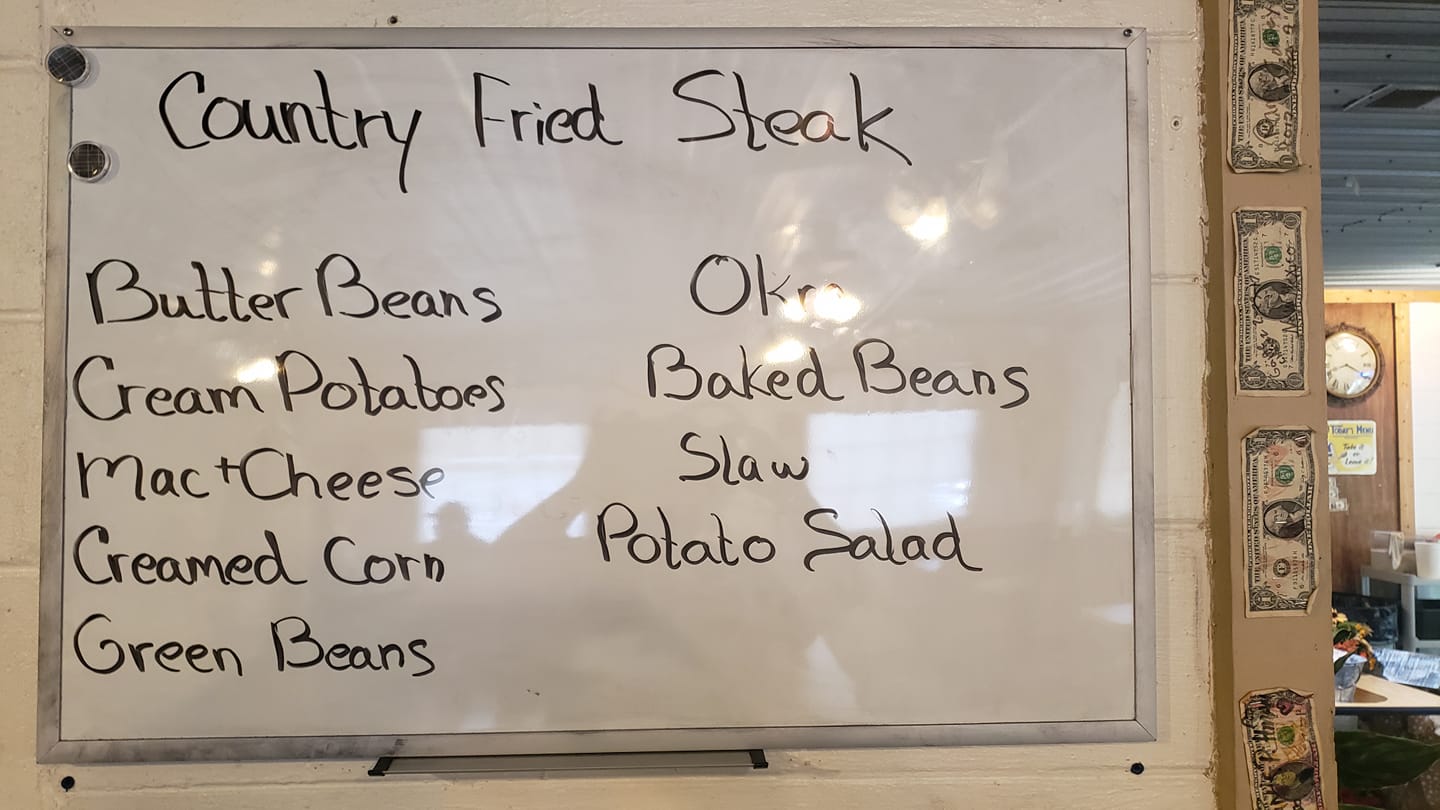 Country Fried Steak
Butter Beans
Cream Potatoes
Mac + Cheese
Creamed Corn
Green Beans
Okra
Baked Beans
Slaw
Potato Salad
TODAY'S MENU
Take it
or
Leave it!